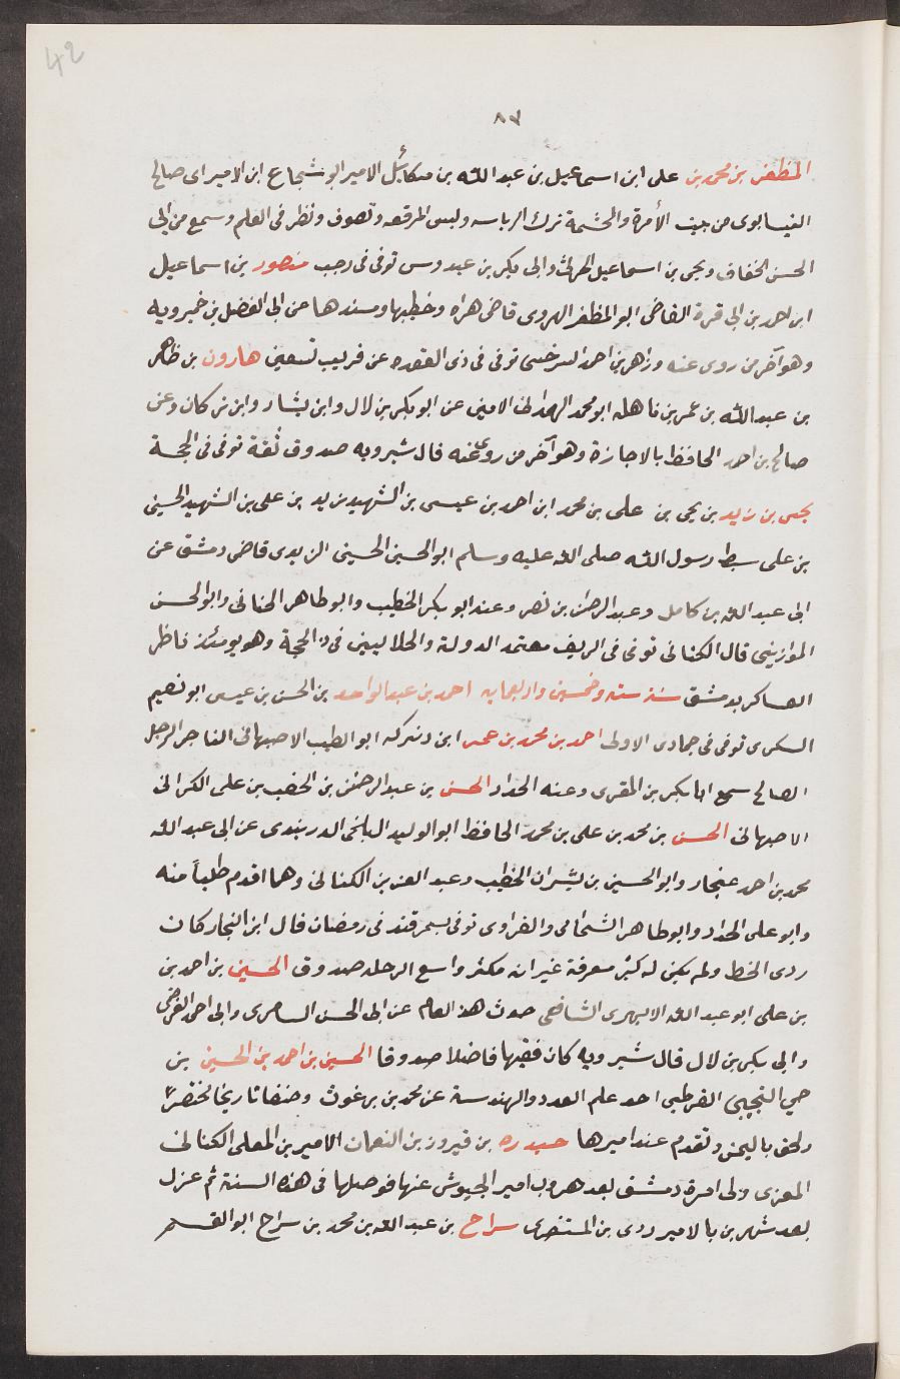 42
٨٧
المظفر بن محمد بن على ابن اسماعيل بن عبد الله بن ميكائيل الامير ابو شجاع ابن الامير ابى صالح
النيسابورى من بيت الأمرة والحشمة ترك الرياسه ولبس المرقعه وتصوف ونظر فى العلم وسمع من ابى
الحسن الخفاف ويحيى بن اسماعيل الحربى وابى بكر بن عبدوس توفى فى رجب منصور بن اسماعيل
ابن احمد بن ابى قرة القاضى ابو المظفر الهروى قاضى هراه وخطيبها ومسندها عن ابى الفضل بن خميرويه
وهو آخر من روى عنه وزاهر بن احمد السرخسى توفى فى ذى القعده عن قريب تسعين هارون بن طاهر
بن عبد الله بن عمر بن ماهله ابو محمد الهمدانى الامين عن ابو بكر بن لال وابن بشار وابن تركان وعن
صالح بن احمد الحافظ بالاجازة وهو آخر من روى عنه قال شيرويه صدوق ثقة توفى فى الحجة
يحيى بن زيد بن يحيى بن على بن محمد ابن احمد بن عيسى بن الشهيد زيد بن على بن الشهيد الحسين
بن على سبط رسول الله صلى الله عليه وسلم ابو الحسين الحسينى الزيدى قاضى دمشق عن
ابى عبد الله بن كامل وعبد الرحمن بن نصر وعنه ابو بكر الخطيب وابو طاهر الحنائى وابو الحسن
الموازينى قال الكتانى توفى فى الريف معتمد الدولة والجلالين فى ذ الحجة وهو يومئذ ناظر
العساكر بدمشق سنة ستة وخمسين واربعمايه احمد بن عبد الواحد بن الحسن بن عيسى ابو نعيم
السكرى توفى فى جمادى الاولى احمد بن محمد بن عمر ابن دنركه ابو الطيب الاصبهانى التاجر الرجل
الصالح سمع ابا بكر بن المقرى وعنه الحداد الحسن بن عبد الرحمن بن الخصيب بن على الكرانى
الاصبهانى الحسن بن محمد بن على بن محمد الحافظ ابو الوليد البلخى الدربندى عن ابى عبد الله
محمد بن احمد غنجار وابو الحسين بن بشران الخطيب وعبد العزيز الكتانى وهما اقدم طلباً منه
وابو على الحداد وابو طاهر الشحامى والفراوى توفى بسمرقند فى رمضان قال ابن النجار كان
ردى الخط ولم يكن له كثير معرفة غير انه مكثر واسع الرحلة صدوق الحسين بن احمد بن
بن على ابو عبد الله الابهرى الشافعى حدث هذا العام عن ابى الحسن السامرى وابى احمد الفرضى
وابى بكر بن لال قال شيرويه كان فقيها فاضلا صدوقا الحسين بن احمد بن الحسين بن
حي التجيبى القرطبى احد علم العدد والهندسة عن محمد بن برغوث وصنف تاريخا مختصراً
ولحق باليمن وتقدم عند اميرها حيدره بن فيروز بن النعمان الامير بن المعلى الكتانى
المعزى ولى امرة دمشق بعد هروب امير الجيوش عنها فوصلها فى هذه السنة ثم عزل
بعد شهرين بالامير درى بن المستنصرى سراج بن عبد الله بن محمد بن سراج ابو القسم